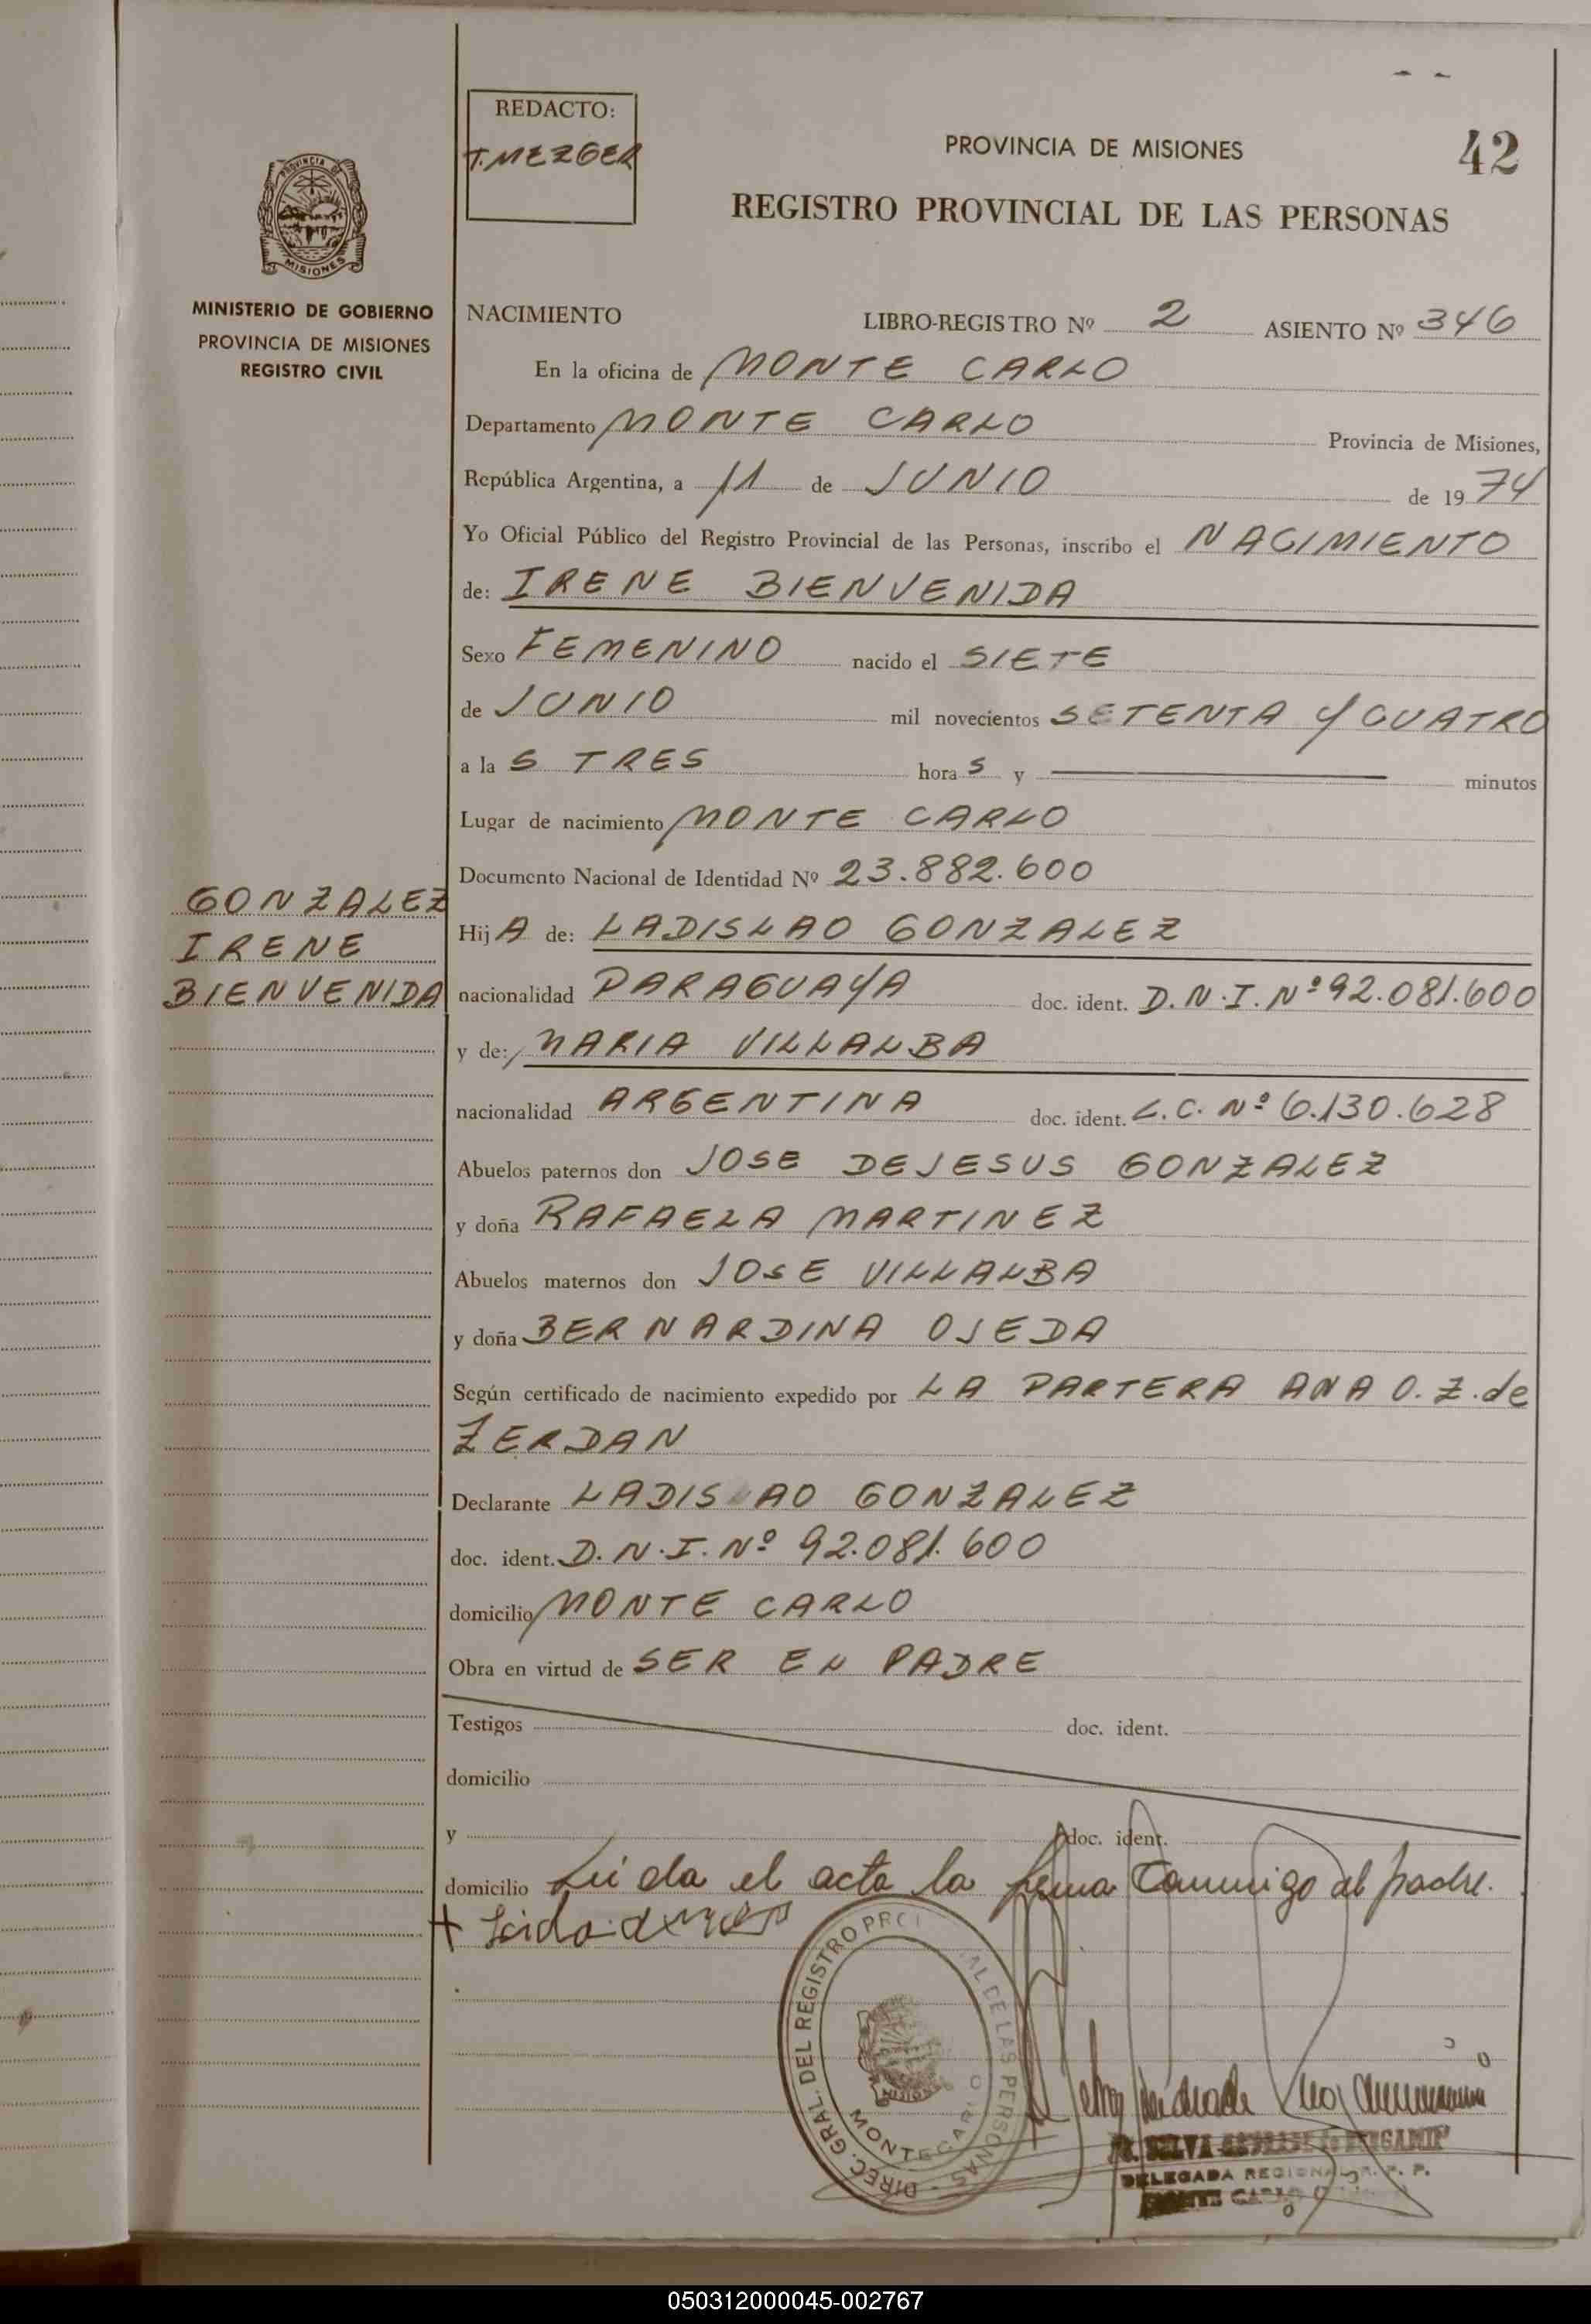 REDACTO:
T. MEZGER
PROVINCIA DE MISIONES
42
REGISTRO PROVINCIAL DE LAS PERSONAS
PROVINCIA DE
MISIONES
MINISTERIO DE GOBIERNO
PROVINCIA DE MISIONES
REGISTRO CIVIL
NACIMIENTO LIBRO-REGISTRO Nº 2 ASIENTO Nº 346
En la oficina de MONTE CARLO
Departamento MONTE CARLO Provincia de Misiones,
República Argentina, a 11 de JUNIO de 1974
Yo Oficial Público del Registro Provincial de las Personas, inscribo el NACIMIENTO
de: IRENE BIENVENIDA
Sexo FEMENINO nacido el SIETE
de JUNIO mil novecientos SETENTA Y CUATRO
a la S TRES hora S y minutos
Lugar de nacimiento MONTE CARLO
Documento Nacional de Identidad Nº 23.882.600
GONZALEZ
IRENE
BIENVENIDA
Hij A de: LADISLAO GONZALEZ
nacionalidad PARAGUAYA doc. ident. D.N.I. Nº 92.081.600
y de: MARIA VILLALBA
nacionalidad ARGENTINA doc. ident. L.C. Nº 6.130.628
Abuelos paternos don JOSE DEJESUS GONZALEZ
y doña RAFAELA MARTINEZ
Abuelos maternos don JOSE VILLALBA
y doña BERNARDINA OJEDA
Según certificado de nacimiento expedido por LA PARTERA ANA O. Z. de
ZERDAN
Declarante LADISLAO GONZALEZ
doc. ident. D.N.I. Nº 92.081.600
domicilio MONTE CARLO
Obra en virtud de SER EL PADRE
Testigos doc. ident.
domicilio
y doc. ident.
domicilio Leída el acta la firma conmigo el padre.
DIREC. GRAL. DEL REGISTRO PROVINCIAL DE LAS PERSONAS
MONTECARLO
MISIONES
SELVA
DELEGADA REGIONAL R. P. P.
MONTE CARLO
050312000045-002767